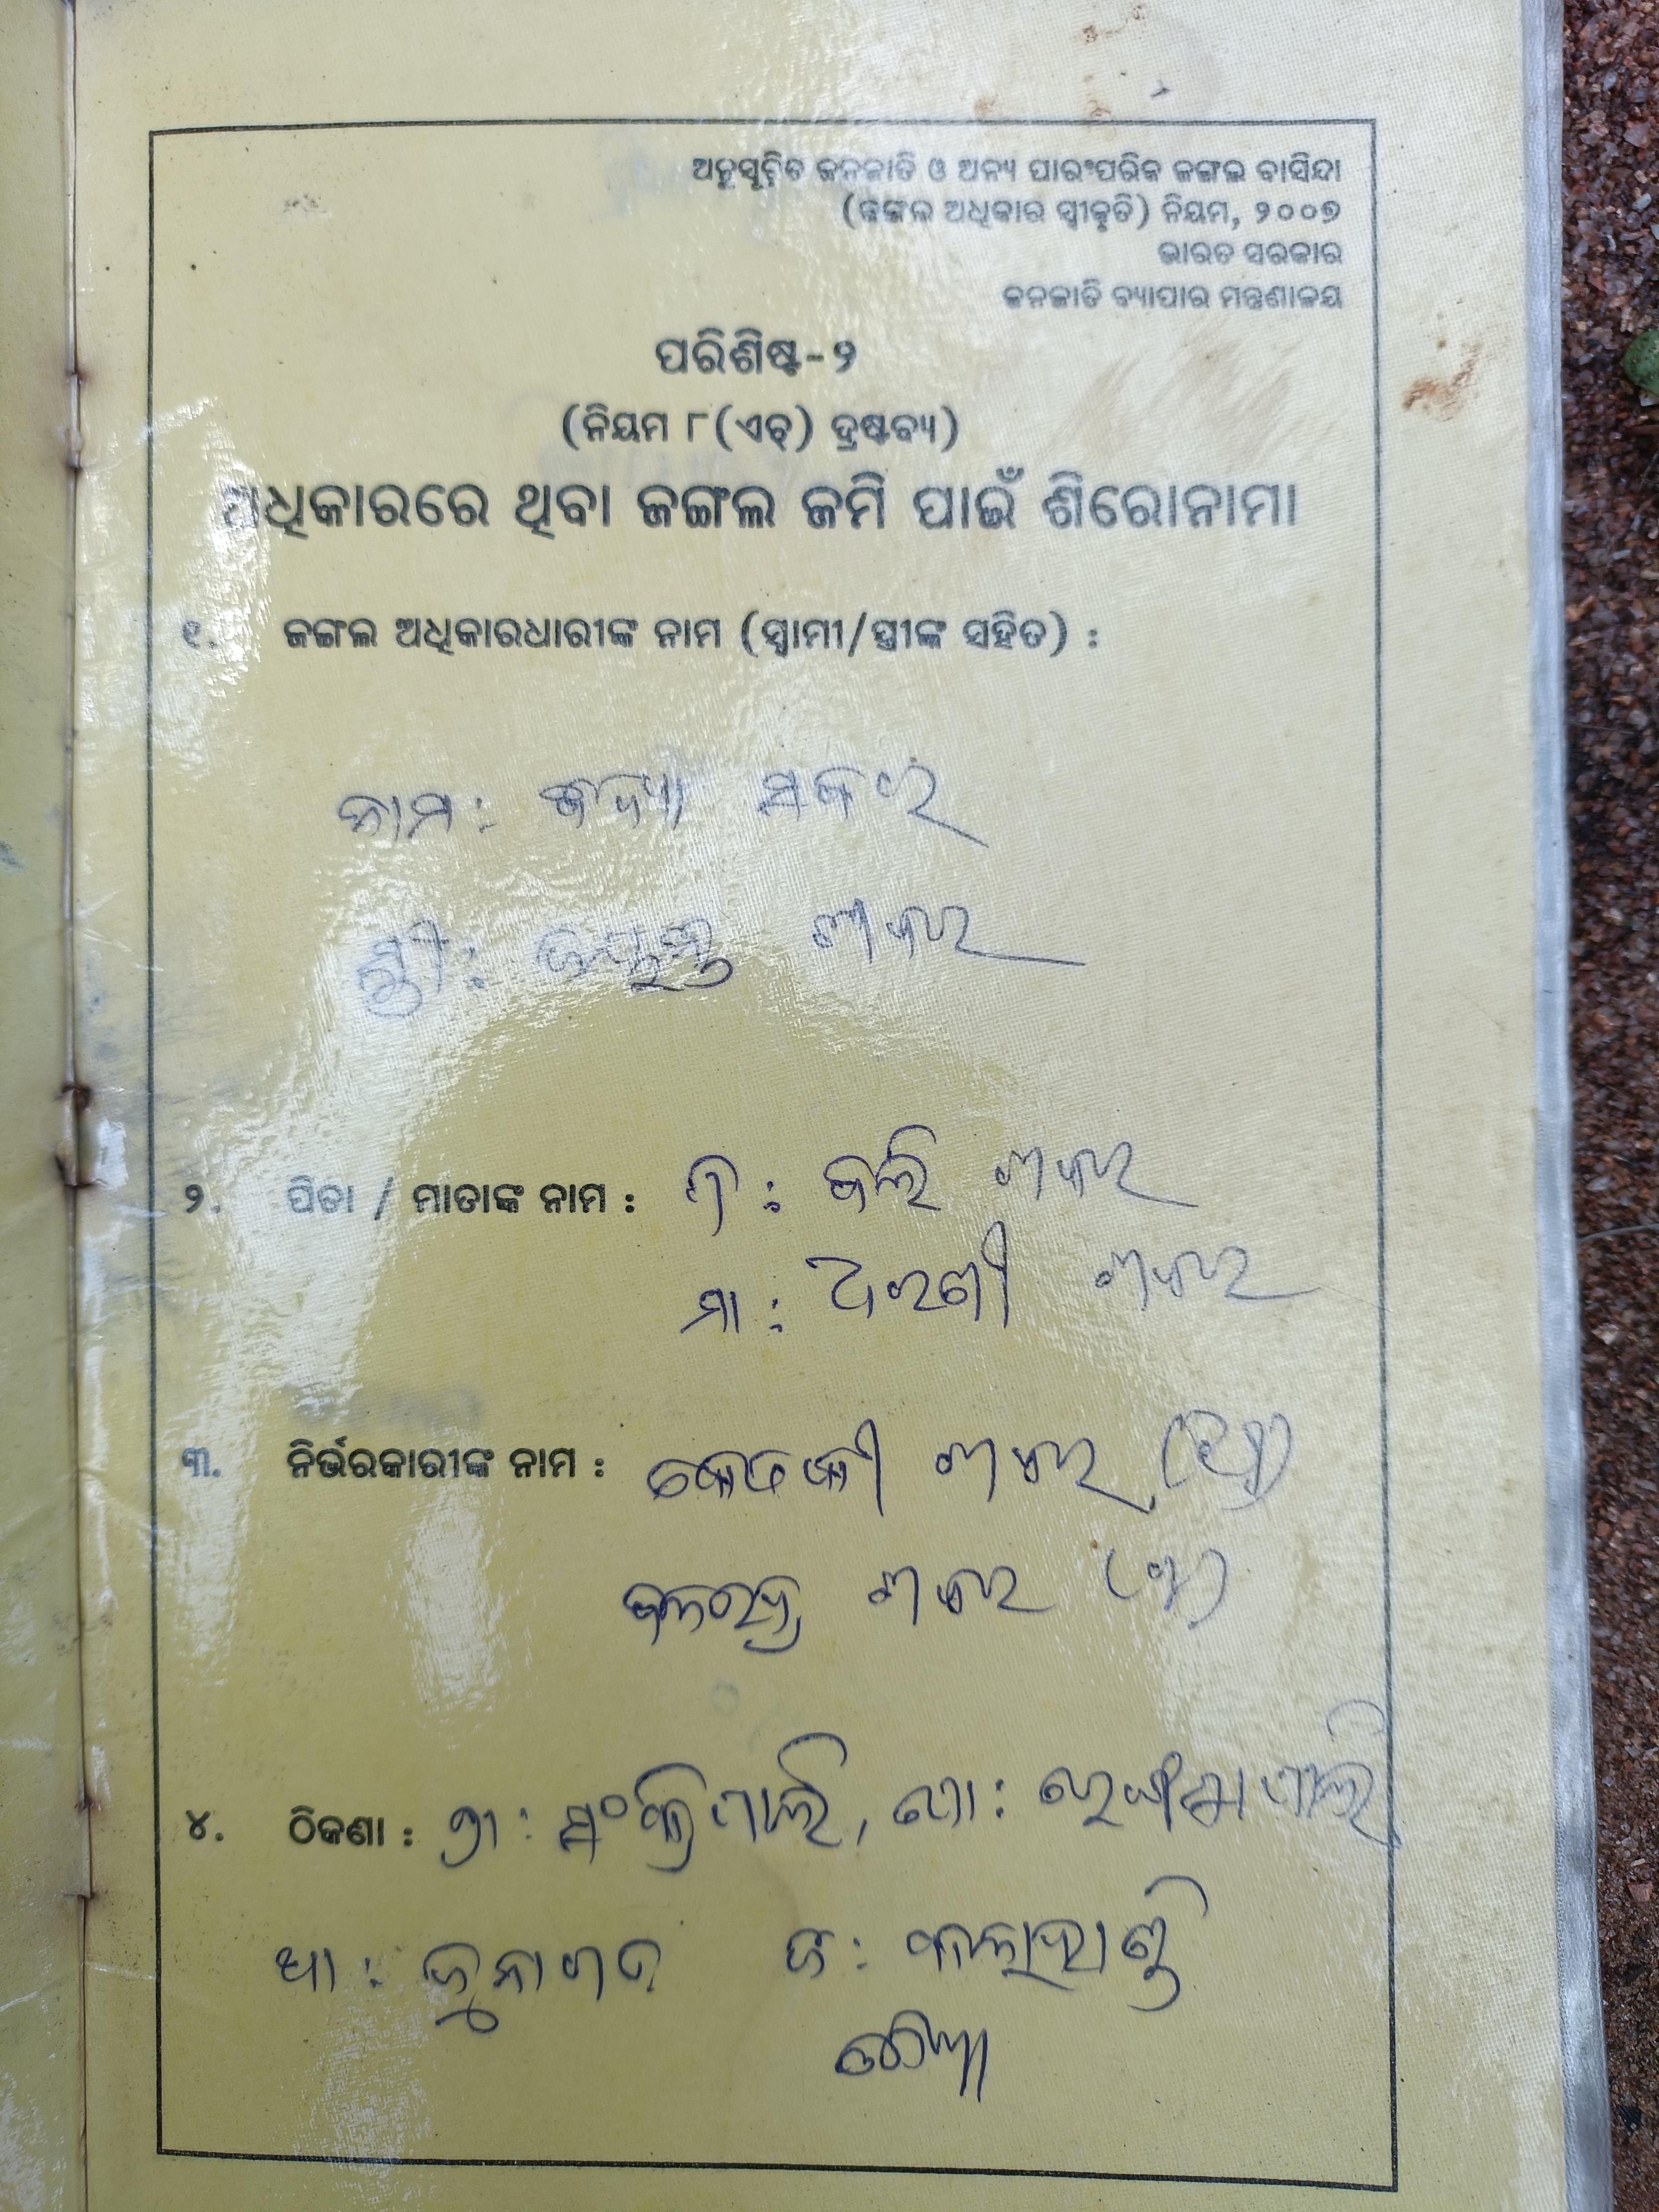 ଅନୁସୂଚିତ ଜନଜାତି ଓ ଅନ୍ୟ ପାରଂପରିକ ଜଙ୍ଗଲ ବାସିନ୍ଦା
(ଜଙ୍ଗଲ ଅଧିକାର ସ୍ୱୀକୃତି) ନିୟମ, ୨୦୦୭
ଭାରତ ସରକାର
ଜନଜାତି ବ୍ୟାପାର ମନ୍ତ୍ରଣାଳୟ
ପରିଶିଷ୍ଟ-୨
(ନିୟମ ୮(ଏଚ୍) ଦ୍ରଷ୍ଟବ୍ୟ)
ଅଧିକାରରେ ଥିବା ଜଙ୍ଗଲ ଜମି ପାଇଁ ଶିରୋନାମା
୧. ଜଙ୍ଗଲ ଅଧିକାରଧାରୀଙ୍କ ନାମ (ସ୍ୱାମୀ/ସ୍ତ୍ରୀଙ୍କ ସହିତ) :
ନାମ :
ସ୍ତ୍ରୀ : ଶବର
୨. ପିତା / ମାତାଙ୍କ ନାମ : ପି : ଶବର
ମା : ଶବର
୩. ନିର୍ଭରକାରୀଙ୍କ ନାମ : କେତକୀ ଶବର (ଝିଅ)
ଶବର (ପୁଅ)
୪. ଠିକଣା : ଗ୍ରା : ପୋ :
ଥା : ଜୁନାଗଡ ଜି : କଳାହାଣ୍ଡି
ଓଡିଶା